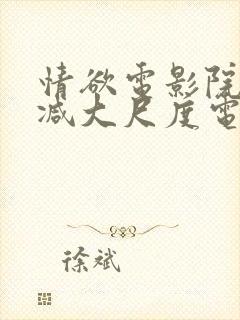 情欲電影院
減大尺度電
徐斌